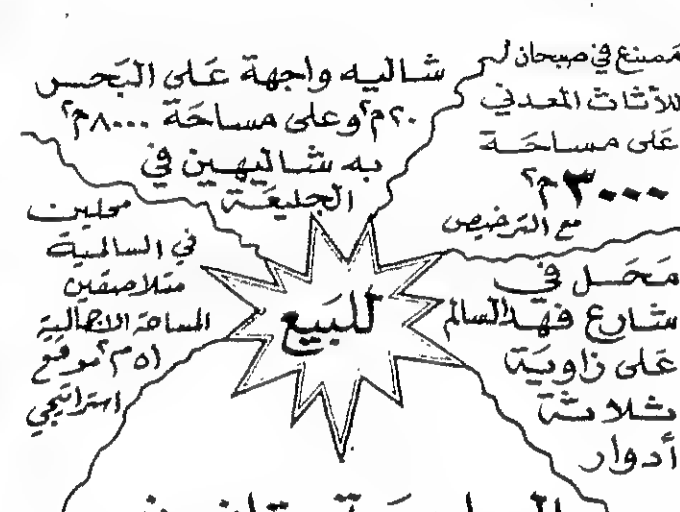 مصنع في صبحان لـ
للأثاث المعدني
على مساحة
٣٠٠٠م٢
مع الترخيص
شاليه واجهة على البحر
٢٠م٢ وعلى مساحة ٨٠٠٠م٢
به شاليهين في
الجليعة
محلين
في السالمية
متلاصقين
المساحة الاجمالية
٥١م٢ موقع
استراتيجي
للبيع
محل في
شارع فهد السالم
على زاوية
ثلاثة
أدوار